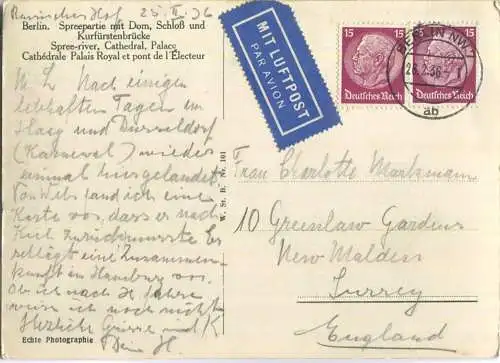 Russischer Hof 25. II. 36
Berlin. Spreepartie mit Dom, Schloß und
Kurfürstenbrücke
Spree-river, Cathedral, Palace
Cathédrale Palais Royal et pont de l'Électeur
M. L. Nach einigen
lebhaften Tagen im
Haag und Düsseldorf
(Karneval) wieder
einmal hier gelandet.
Von Webs fand ich eine
Karte vor, dass er nach
Kiel zurück musste. Er
schlägt eine Zusammen-
kunft in Hamburg vor.
Ob ich nach H. fahre
weiss ich noch nicht
Herzliche Grüsse und K
Dein H.
Echte Photographie
W. St. B. Nr. 101
MIT LUFTPOST
PAR AVION
15 15 Deutsches Reich
15 15 Deutsches Reich
BERLIN NW7
26.2.36
ab
Frau Charlotte Markmann
10 Greenlaw Gardens
New Malden
Surrey
England